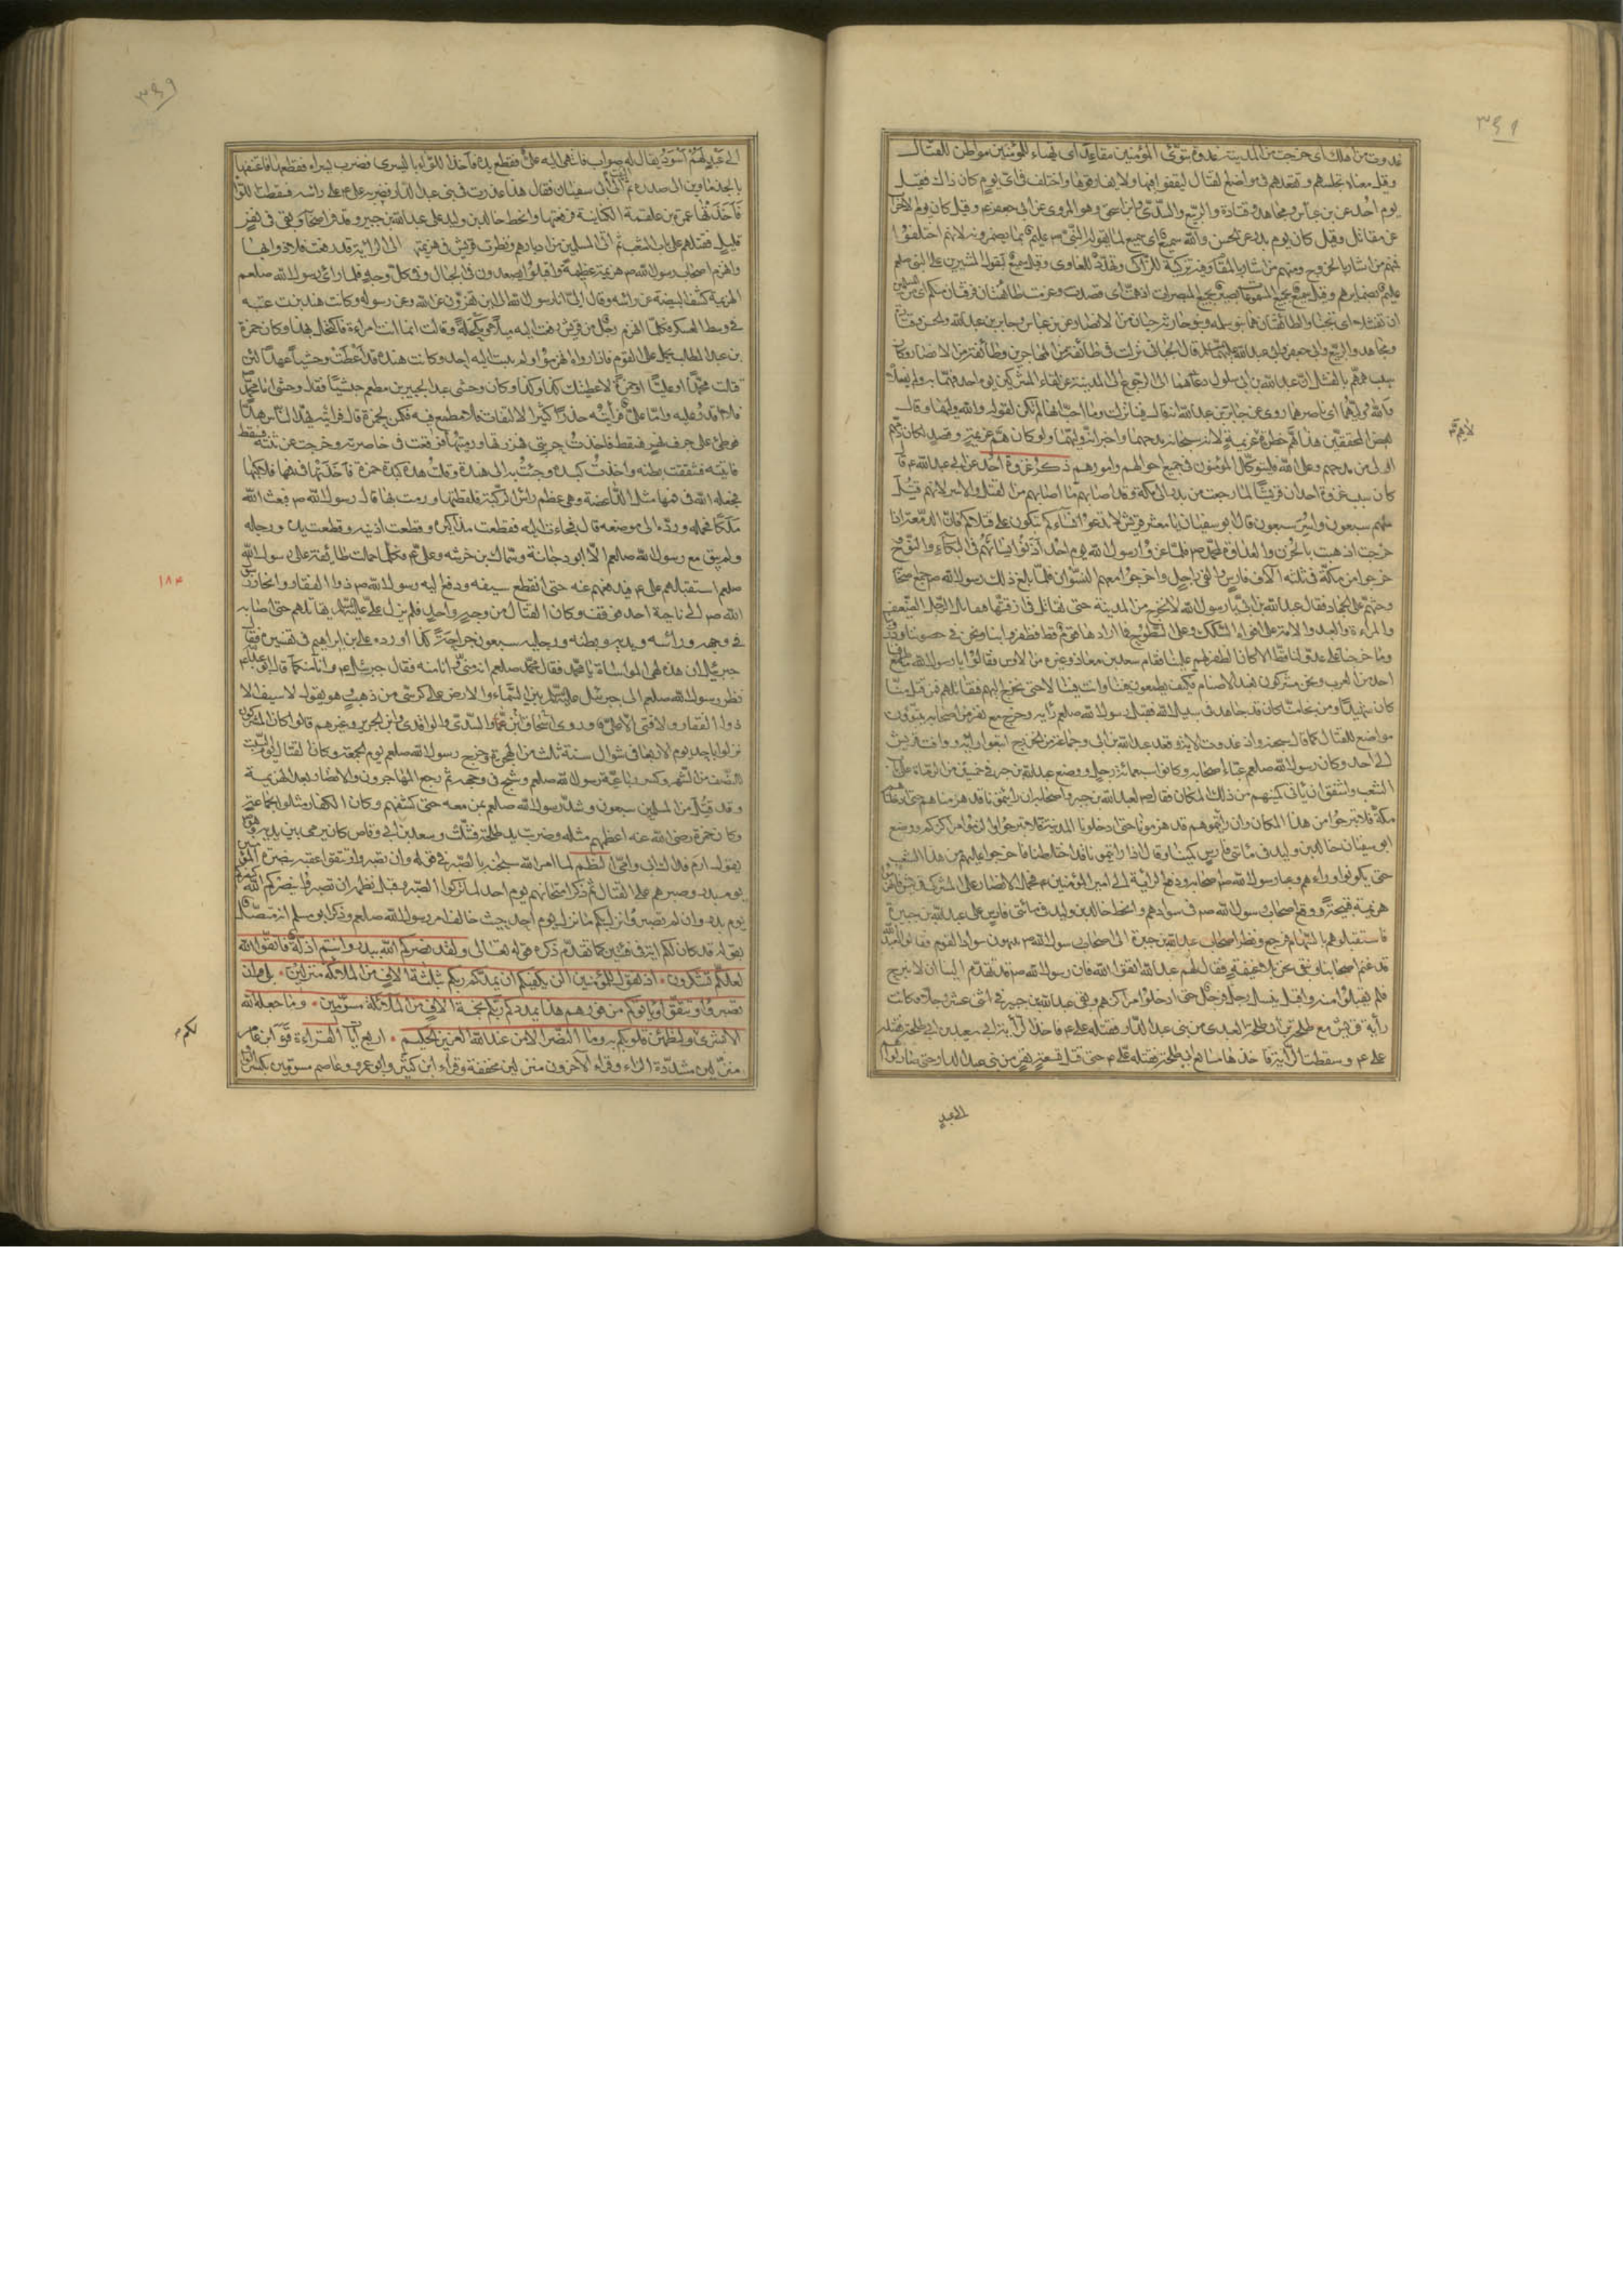 ٣٩٨
غدوت من اهلك اى خرجت من المدينة غدوة تبوئ المؤمنين مقاعد اى تهيّاء للمؤمنين مواطن للقتال
وقيل معناه تجلسهم وتقعدهم فى مواضع القتال ليقفوا فيها ولا يفارقوها واختلف فى اى يوم كان ذلك فقيل
يوم احد عن بن عباس ومجاهد وقتادة والربيع والسدّى وابن اسحق وهو المروى عن ابى جعفر ع وقيل كان يوم الاحزاب
عن مقاتل وقيل كان يوم بدر عن الحسن والله سميع اى سميع لما يقوله النبى ص عليم بما يضمرونه لانهم اختلفوا
فمنهم من اشار بالخروج ومنهم من اشار بالمقام وفيه تزكية للزاكى وتهديد للغاوى وقيل سميع لقول المشيرين على النبى صلعم
عليم بضمايرهم وقيل سميع بجميع المسموعات بصير بجميع المبصرات اذ همّت اى قصدت وعزمت طائفتان فرقتان منكم اى من المسلمين
ان تفشلا اى تجبنا والطائفتان هما بنو سلمه وبنو حارثه حيان من الانصار عن بن عباس وجابر بن عبد الله والحسن وقتادة
ومجاهد والربيع وابى جعفر وابى عبد الله عليهما السلام قال الجبائى نزلت فى طائفة من المهاجرين وطائفة من الانصار وكان
سبب همّهم بالفشل انّ عبد الله بن ابى سلول دعاهما الى الرجوع الى المدينة عن لقاء المشركين يوم احد فهمّا به ولم يفعلاه
والله وليّهما اى ناصرهما روى عن جابر بن عبد الله انه قال فينا نزلت وما احبّ انها لم تكن لقوله والله وليهما وقال
بعض المحققين هذا همّ خطرة لا همّ عزيمة لانه سبحانه مدحهما واخبر انّه وليّهما ولو كان همّ عزيمة وقصد لكان ذمّهم
اولى من مدحهم وعلى الله فليتوكّل المؤمنون فى جميع احوالهم وامورهم ذكر غزوة احد عن ابى عبد الله ع قال
كان سبب غزوة احد ان قريشا لما رجعت من بدر الى مكة وقد اصابهم ما اصابهم من القتل والاسر لانهم قتل
منهم سبعون واسر سبعون قال ابو سفيان يا معشر قريش لا تدعوا نساءكم تبكون على قتلاكم فانّ الدمعة اذا
خرجت اذهبت بالحزن والعداوة لمحمد ص فلمّا غزوا رسول الله يوم احد اذنوا لنسائهم فى البكاء والنوح
خرجوا من مكّة فى ثلثة آلاف فارس والفى راجل واخرجوا معهم النسوان فلمّا بلغ ذلك رسول الله ص جمع اصحابه
وحثهم على الجهاد فقال عبد الله بن ابىّ يا رسول الله لا نخرج من المدينة حتى نقاتل فى ازقتها فيقاتل الرجل الضعيف
والمراءة والعبد والامة على افواه السكك وعلى السطوح فما ارادها قوم قط فظفروا بنا ونحن فى حصوننا ودورنا
وما خرجنا على عدوّ لنا قط الا كان الظفر لهم علينا فقام سعد بن معاذ وغيره من الاوس فقالوا يا رسول الله ما طمع
احد من العرب ونحن مشركون نعبد الاصنام فكيف يطمعون فينا وانت فينا لا حتى نخرج اليهم فنقاتلهم فمن قتل منّا
كان شهيدا ومن نجا منّا كان قد جاهد فى سبيل الله فقبل رسول الله صلعم رايه وخرج مع نفر من اصحابه يتبوؤن
مواضع للقتال كما قال سبحنه واذ غدوت الاية وقعد عنه عبد الله بن ابى وجماعة من الخزرج اتبعوا رايه ووافت قريش
الى احد وكان رسول الله صلعم عبّاء اصحابه وكانوا سبعمائة رجل ووضع عبد الله بن جبير فى خمسين من الرماة على باب
الشعب واشفق ان ياتى كمينهم من ذلك المكان فقال ص لعبد الله بن جبير واصحابه ان رايتمونا قد هزمناهم حتى ادخلناهم
مكة فلا تبرحوا من هذا المكان وان رايتموهم قد هزمونا حتى ادخلونا المدينة فلا تبرحوا والزموا مراكزكم ووضع
ابو سفيان خالد بن وليد فى مائتى فارس كمينا وقال اذا رايتمونا قد اختلطنا فاخرجوا عليهم من هذا الشعب
حتى تكونوا وراءهم وعبا رسول الله ص اصحابه ودفع الراية الى امير المؤمنين ع فحمل الانصار على مشركى قريش فانهزموا
هزيمة قبيحة ووقع اصحاب رسول الله ص فى سوادهم وانحط خالد بن وليد فى مائتى فارس على عبد الله بن جبير
فاستقبلوهم بالسّهام فرجع ونظر اصحاب عبد الله بن جبير الى اصحاب رسول الله ص ينهبون سواد القوم فقالوا لعبد الله
قد غنم اصحابنا ونبقى نحن بلا غنيمة فقال لهم عبد الله اتقوا الله فان رسول الله ص قد تقدّم الينا ان لا نبرح
فلم يقبلوا منه واقبل ينسل رجل فرجل حتى اخلوا مراكزهم وبقى عبد الله بن جبير فى اثنى عشر رجلا وكانت
راية قريش مع طلحة بن ابى طلحة العبدى من بنى عبد الدار فقتله على ع فاخذ الراية ابو سعيد بن ابى طلحة فقتله
على ع وسقطت الراية فاخذها مسافع بن ابى طلحة فقتله على ع حتى قتل تسعة نفر من بنى عبد الدار حتى صار لواؤهم
الى عبد
٣٩٩
الى عَبْدٍ لَهُمْ اَسْوَدُ يقال له صواب فانتهى اليه علىّ فقطع يده فاخذ اللواء باليسرى فضرب يسراه فقطعها فاعتنقها
بالجذماوين الى صدره ثم التفت الى ابى سفيان فقال هل اعذرت فى بنى عبد الدار فضربه على ع على راسه فسقط اللواء
فَاَخَذَتْهَا عمرة بن علقمة الكنانية فرفعتها وانحط خالد بن وليد على عبد الله بن جبير وقد فرّ اصحابه وبقى فى نفر
قليل فقتلهم على باب الشعب ثم اتى المسلمين من ادبارهم ونظرت قريش فى هزيمتها الى الراية قد رفعت فلاذوا بها
وانهزم اصحاب رسول الله ص هزيمة عظيمة واقبلوا يصعدون فى الجبال وفى كل وجه فلما راى رسول الله صلعم
الهزيمة كشف البيضة عن راسه وقال الىّ انا رسول الله الى اين تفرّون عن الله وعن رسوله وكانت هند بنت عتبه
فى وسط العسكر فكلّما انهزم رجل من قريش دفعت اليه ميلا ومكحلة وقالت انما انت امراءة فاكتحل بهذا وكان حمزة
بن عبد المطلب يحمل على القوم فاذا راوه انهزموا ولم يثبت اليه احد وكانت هند قد اَعْطَتْ وحشياً عهداً لئن
قتلت محمّدا او عليّا او حمزة لاعطينك كذا وكذا وكان وحشى عبدا لجبير بن مطعم حبشيّا فقال وحشى اما محمد
فلا اقدر عليه وامّا على فرأيته حذرا كثير الالتفات فلا مطمع فيه فكمن لحمزة قال فرايته يهدّ الناس هدّا
فوطئ على جرف نهر فسقط فاخذت حربتى فهززتها ورميته بها فوقعت فى خاصرته وخرجت عن ثنته فسقط
فاتيته فشققت بطنه واخذت كبده وجئت به الى هند وقلت هذه كبد حمزة فاخذتها فى فمها فلاكتها
فجعله الله فى فمها مثل الداغصة وهى عظم راس الركبة فلفظتها ورمت بها قال رسول الله ص فبعث الله
مَلَكا فحمله وردّه الى موضعه قال فجاءت اليه فقطعت مذاكيره وقطعت اذنيه وقطعت يده ورجله
ولم يبق مع رسول الله صلعم الّا ابو دجانة وسماك بن خرشه وعلى ع فكلّما حملت طائفة على رسول الله
صلعم استقبلهم على ع فيدفعهم عنه حتى انقطع سيفه ودفع اليه رسول الله ص ذو الفقار وانحاز رسول
الله ص الى ناحية احد فوقف وكان القتال من وجه واحد فلم يزل على عليه السلام يقاتلهم حتى اصابه
فى وجهه وراسه ويديه وبطنه ورجليه سبعون جراحةً كذا اورده على بن ابراهيم فى تفسيره فقال
جبرئيل ان هذه لهى المواساة يا محمد فقال محمد صلعم انه منّى وانا منه فقال جبرئيل ع وانا منكما قال ابو عبد الله ع
نظر رسول الله صلعم الى جبرئيل عليه السلام بين السّماء والارض على كرسّى من ذهب وهو يقول لا سيف الا
ذو الفقار ولا فتى الا علىّ وروى ابن اسحاق والسدّى والواقدى وابن الجرير وغيرهم قالوا كان المشركون
نزلوا باحد يوم الاربعا فى شوال سنة ثلث من الهجرة وخرج رسول الله صلعم يوم الجمعة وكان القتال يوم السبت
للنصف من الشهر وكسرت رباعيّة رسول الله صلعم وشجّ فى وجهه ثم رجع المهاجرون والانصار بعد الهزيمة
وقد قتل من المسلمين سبعون وشدّ رسول الله صلعم بمن معه حتى كشفهم وكان الكفار مثّلوا بجماعة
وكان حمزة رضى الله عنه اعظمهم مثله وضربت يد طلحة فشلّت وسعد بن ابى وقاص كان يرمى بين يديه وهو
يقول ارم فداك ابى وامّى النظم لما امر الله سبحنه بالصّبر فى قوله وان تصبروا وتتقوا عقبه بنصره المؤمنين
يوم بدر وصبرهم على القتال ثم ذكر امتحانهم يوم احد لما تركوا الصّبر وقيل نظمه ان تصبروا ينصركم الله كنصركم
يوم بدر وان لم تصبروا نزل بكم ما نزل يوم احد حيث خالفتم امر رسول الله صلعم وذكر ابو مسلم انه متصل
بقوله قد كان لكم اية فى فئتين كما تقدّم ذكره قوله تعالى ولقد نصركم الله ببدر وانتم اذلّة فاتقوا الله
لعلكم تشكرون • اذ تقول للمؤمنين الن يكفيكم ان يمدكم ربكم بثلثة الاف من الملائكة منزلين • بلى ان
تصبروا وتتقوا وياتوكم من فورهم هذا يمددكم ربكم بخمسة الاف من الملائكة مسوّمين • وما جعله الله
الا بشرى ولتطمئن قلوبكم به وما النصر الا من عند الله العزيز الحكيم • اربع آيات القراءة قرأ ابن عامر
منزّلين مشدّدة الزاء وقراء الآخرون منزلين مخففة وقراء ابن كثير وابو عمرو وعاصم مسوّمين بكسر الواو
لكم
١٨٤